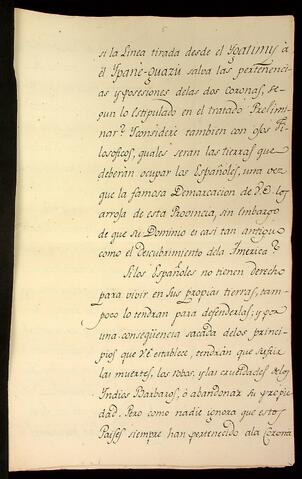 si la Linea tirada desde el Ygatimis à
él Ypanè-Guazù salva las pertenencias
y posesiones delas dos Coronas, se-
gun lo estipulado en el tratado Prelimi-
nar? Considere tambien con ojos Fi-
losoficos, quales seran las tierras que
deberán ocupar los Españoles, una vez
que la famosa Demarcacion de V.E. los
arroja de esta Provincia, sin embargo
de que su Dominio es casi tan antiguo
como el Descubrimiento dela America?
Si los Españoles no tienen derecho
para vivir en sus propias tierras, tam-
poco lo tendran para defenderlas; y por
una conseqüencia sacada delos princi-
pios que V.E. establece, tendrán que sufrir
las muertes, los robos, y las crueldades delos
Indios Barbaros, ò abandonar su propie-
dad. Pero como nadie ignora que estos
Paises siempre han pertenecido ala Corona